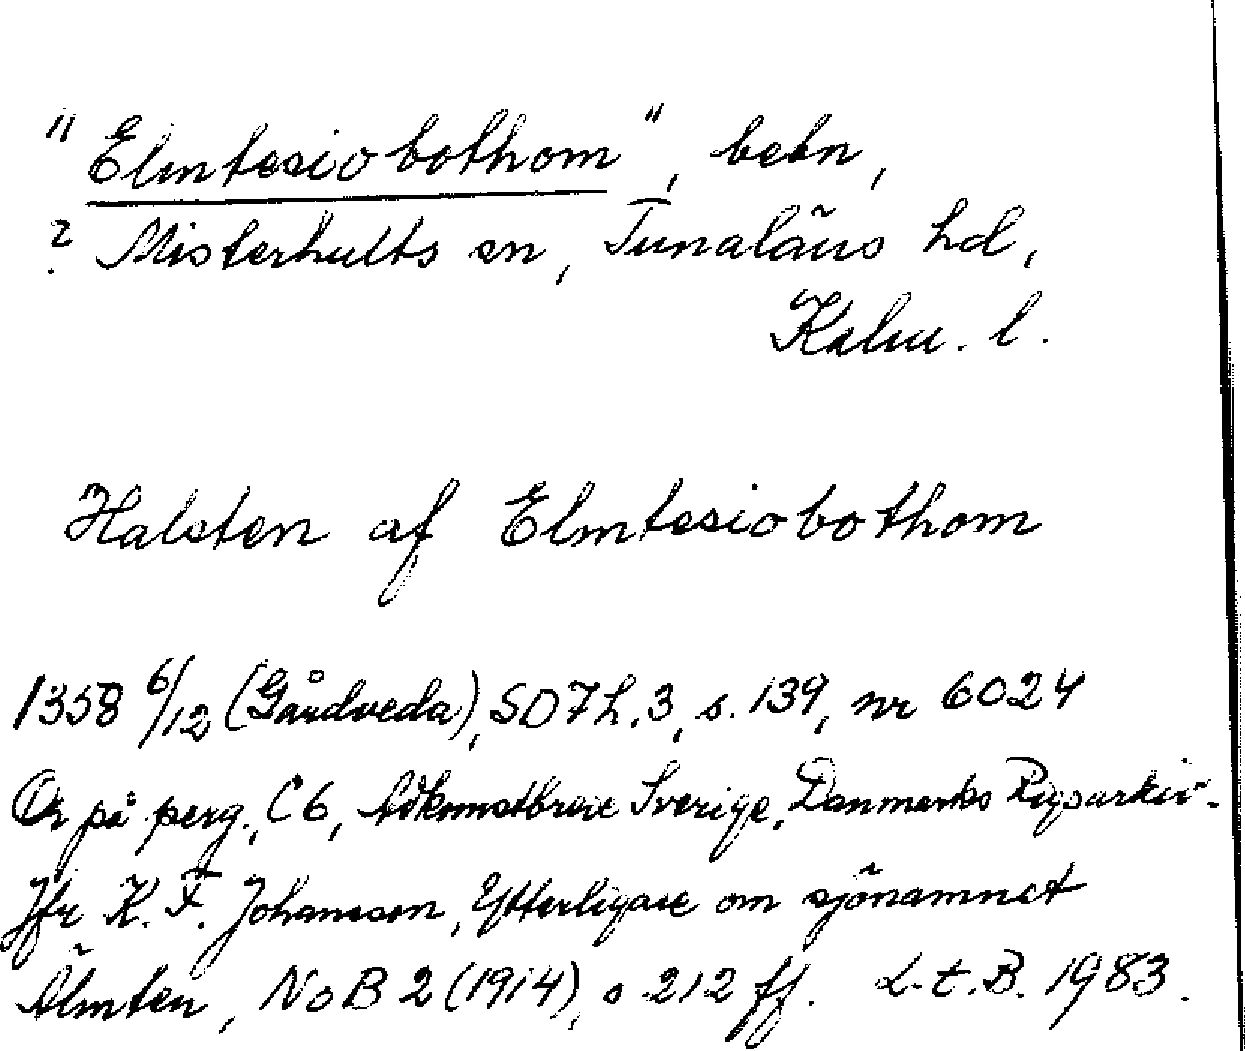 "Elmtesiobothom", bebn,
? Misterhults sn, Tunaläns hd,
Kalm. l.
Halsten af Elmtesiobothom
1358 6/12 (Gårdveda), SD 7 h. 3, s. 139, nr 6024
Or på perg., C6, Adkomstbreve Sverige, Danmarks Rigsarkiv.
Jfr K. F. Johansson, Ytterligare om sjönamnet
Älmten, NoB 2 (1914), s 212 ff. L.t.B. 1983.